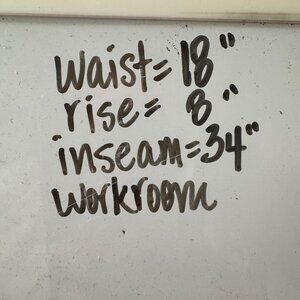 waist= 18"
rise= 8"
inseam=34"
workroom